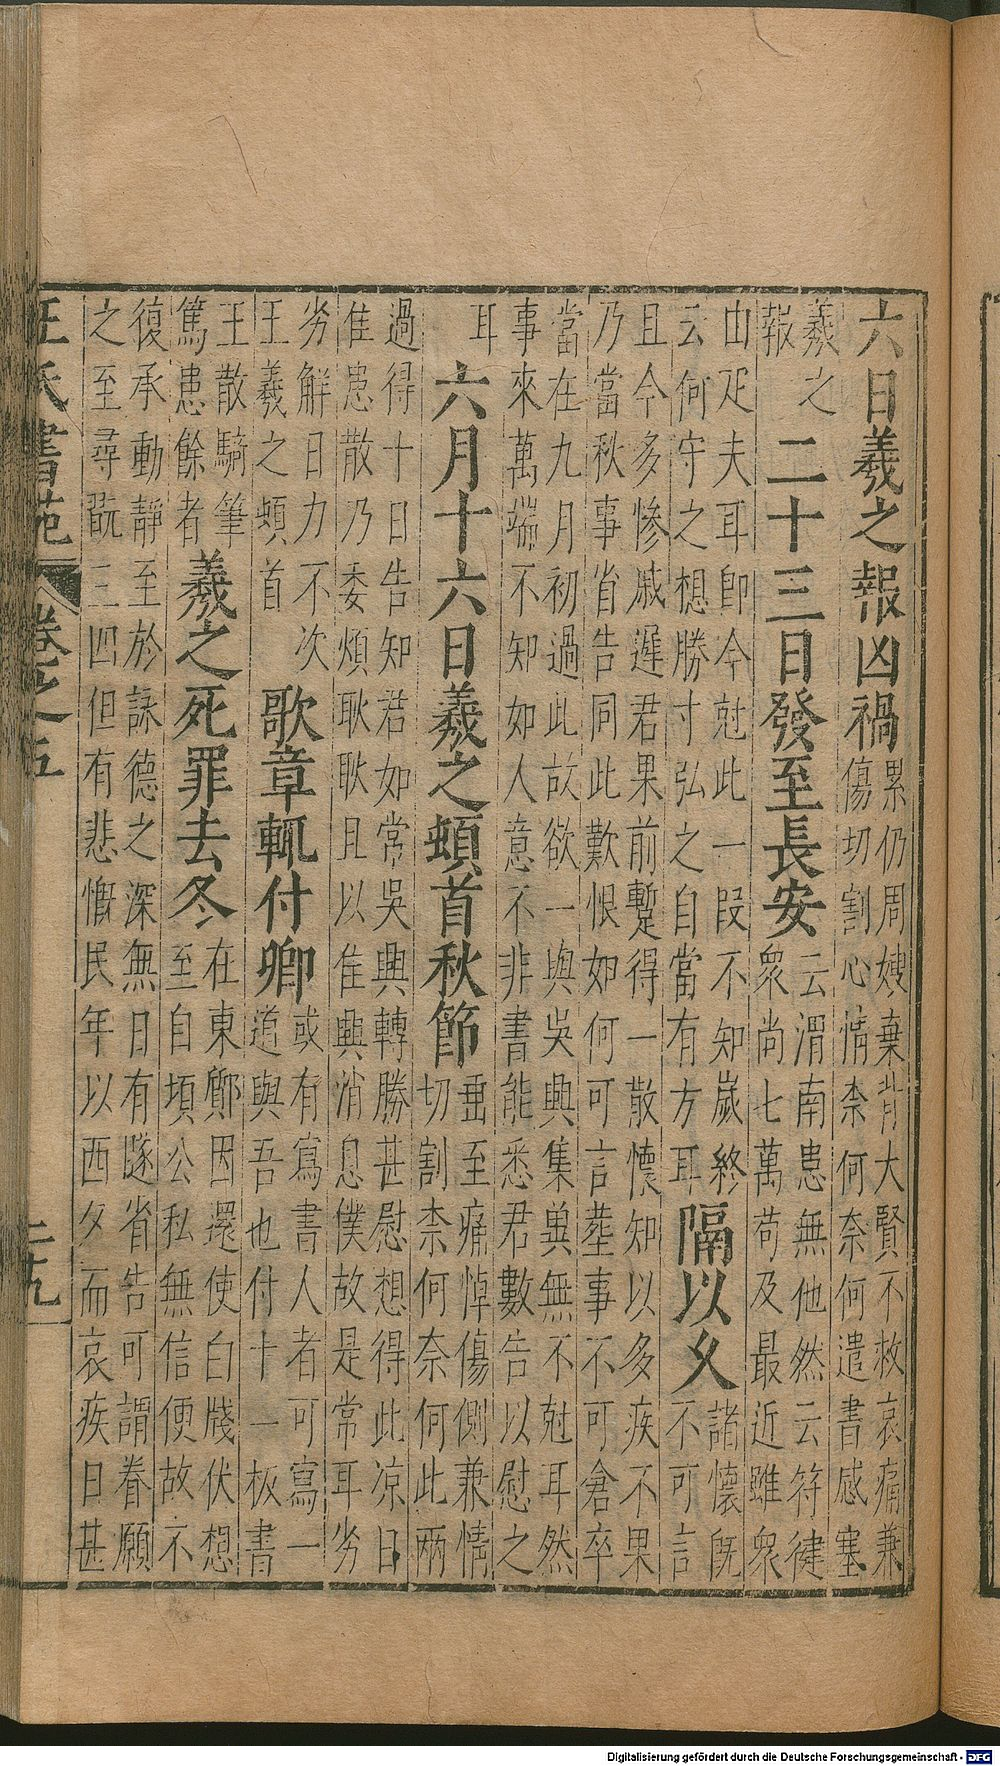 六日羲之報凶禍
累仍周嫂棄背大賢不救哀痛兼
傷切割心情柰何奈何遣書感塞
羲之
報
二十三日發至長安
云渭南患無他然云符健
衆尚七萬苟及最近雖衆
由疋夫耳即今尅此一段不知嵗終
云何守之想勝寸弘之自當有方耳
隔以久
諸懷既
不可言
且今多慘戚遲君果前蹔得一散懷知以多疾不果
乃當秋事省告同此歎恨如何可言塟事不可倉卒
當在九月初過此故欲一與吳興集兾無不尅耳然
事來萬端不知如人意不非書能悉君數告以慰之
耳
六月十六日羲之頓首秋節
垂至痛悼傷惻兼情
切割柰何奈何此兩
過得十日告知君如常吳興轉勝甚慰想得此凉日
隹患散乃委煩耿耿且以隹興消息僕故是常耳劣
劣解日力不次
王羲之頓首
歌章輒付卿
或有寫書人者可寫一
道與吾也付卄一板書
王散騎筆
篤患餘者
羲之死罪去冬
在東鄮因還使白牋伏想
至自頃公私無信便故不
復承動靜至於詠德之深無日有隧省告可謂眷願
之至尋翫三四但有悲慨民年以西夕而哀疾日甚
王氏書苑 卷之五 二十九
Digitalisierung gefördert durch die Deutsche Forschungsgemeinschaft - DFG